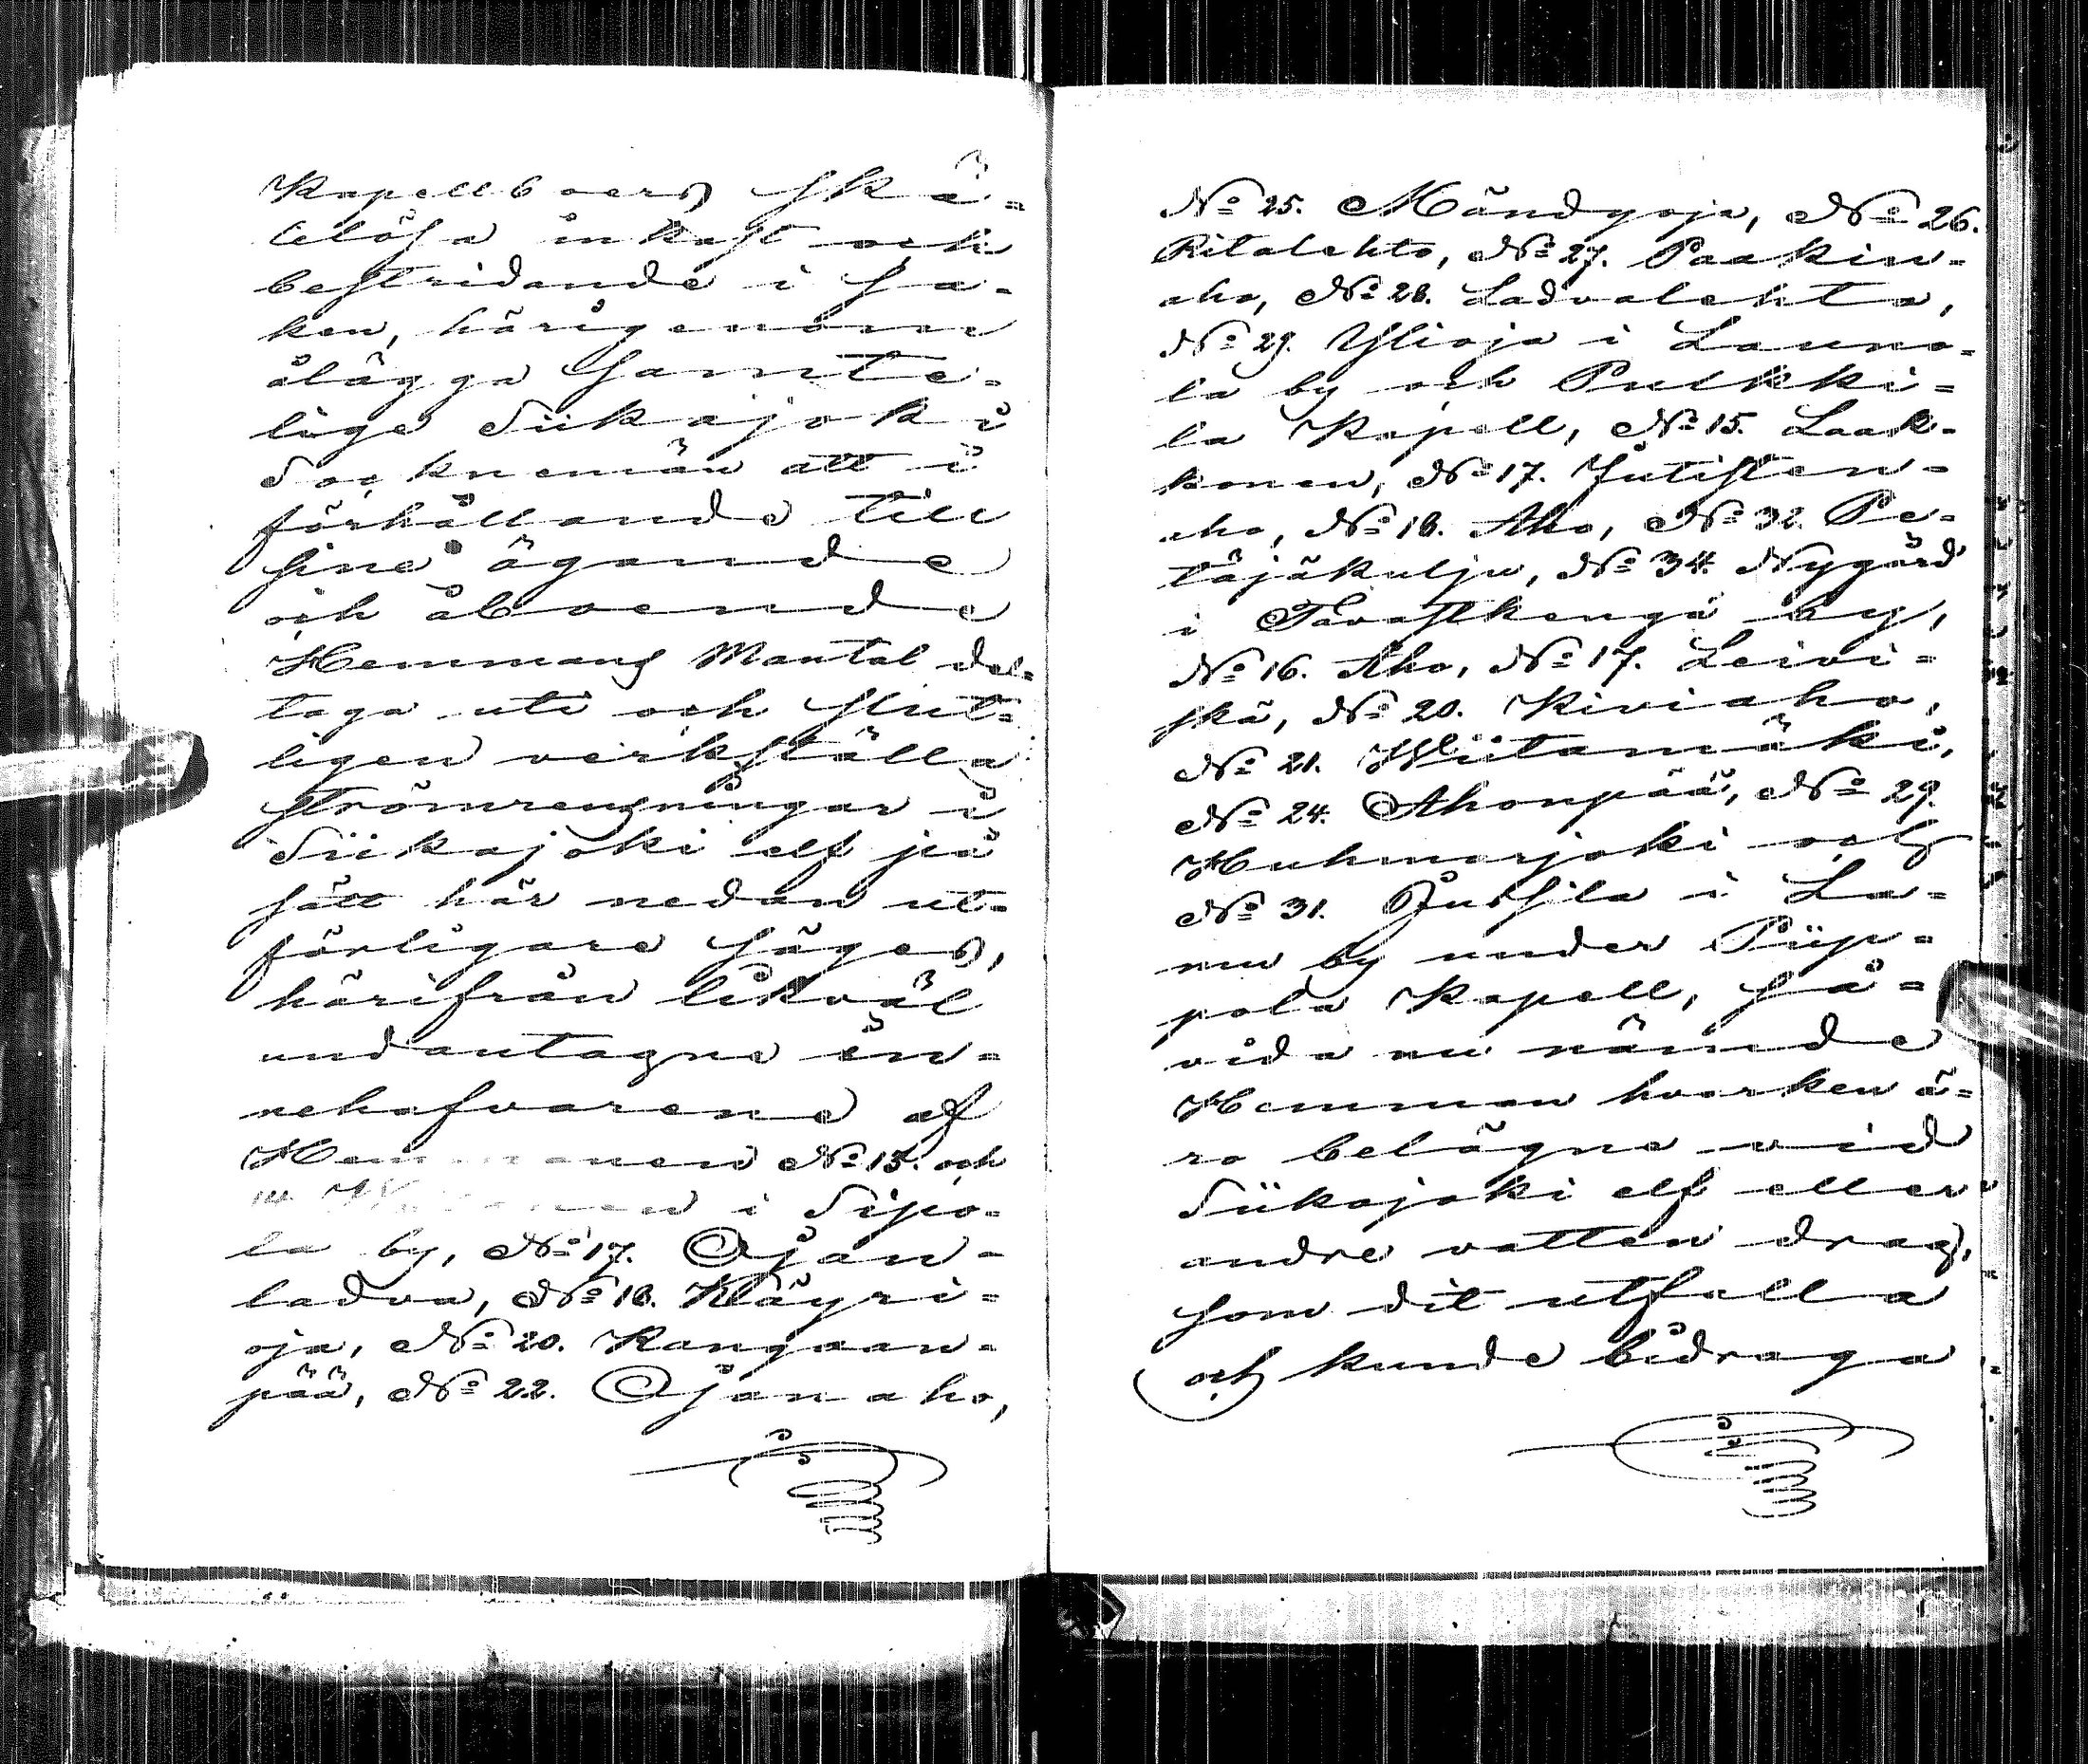 Kapellboers skä-
lelösa inkast och
bestridande i sa-
ken, härigenom
ålägga samte-
lige Siikajoki
Socknemän att i
förhållande till
sine ägande
och åboende
Hemmans Mantal del-
taga uti och slut-
ligen verkställa
strömrensningar i
Siikajoki elf på
sätt här nedan ut-
förligare säges,
härifrån likväl
undantagne in-
nehafvarene af
Hemmanen No 15. och
14. i Sipo-
la by, No 17. Ojan-
ladva, No 18. Kläyri-
oja, No 20. Kangaan-
pää, No 22. Ojanaho,
No 25. Mändyoja, No 26.
Ritalehto, No 27. Paakin-
aho, No 28. Ladvalehto,
No 29. Ylioja i Launo-
la by och Pulkki-
la Kapell, No 15. Laak-
konen, No 17. Jutisten-
aho, No 18. Aho, No 32. Pe-
täjäkulju, No 34. Nygård
i Tavastkenga by,
No 16. Aho, No 17. Leivi-
skä, No 20. Kiviaho,
No 21. Wiitamäki,
No 24. Ahonpää, No 29.
Huhmarjoki och
No 31. Jussila i La-
mu by under Piip-
pola Kapell, så-
vida nu nämde
Hemman hvarken ä-
ro belägne vid
Siikajoki elf eller
andre vatten drag,
som dit utfalla
och kunde bidraga